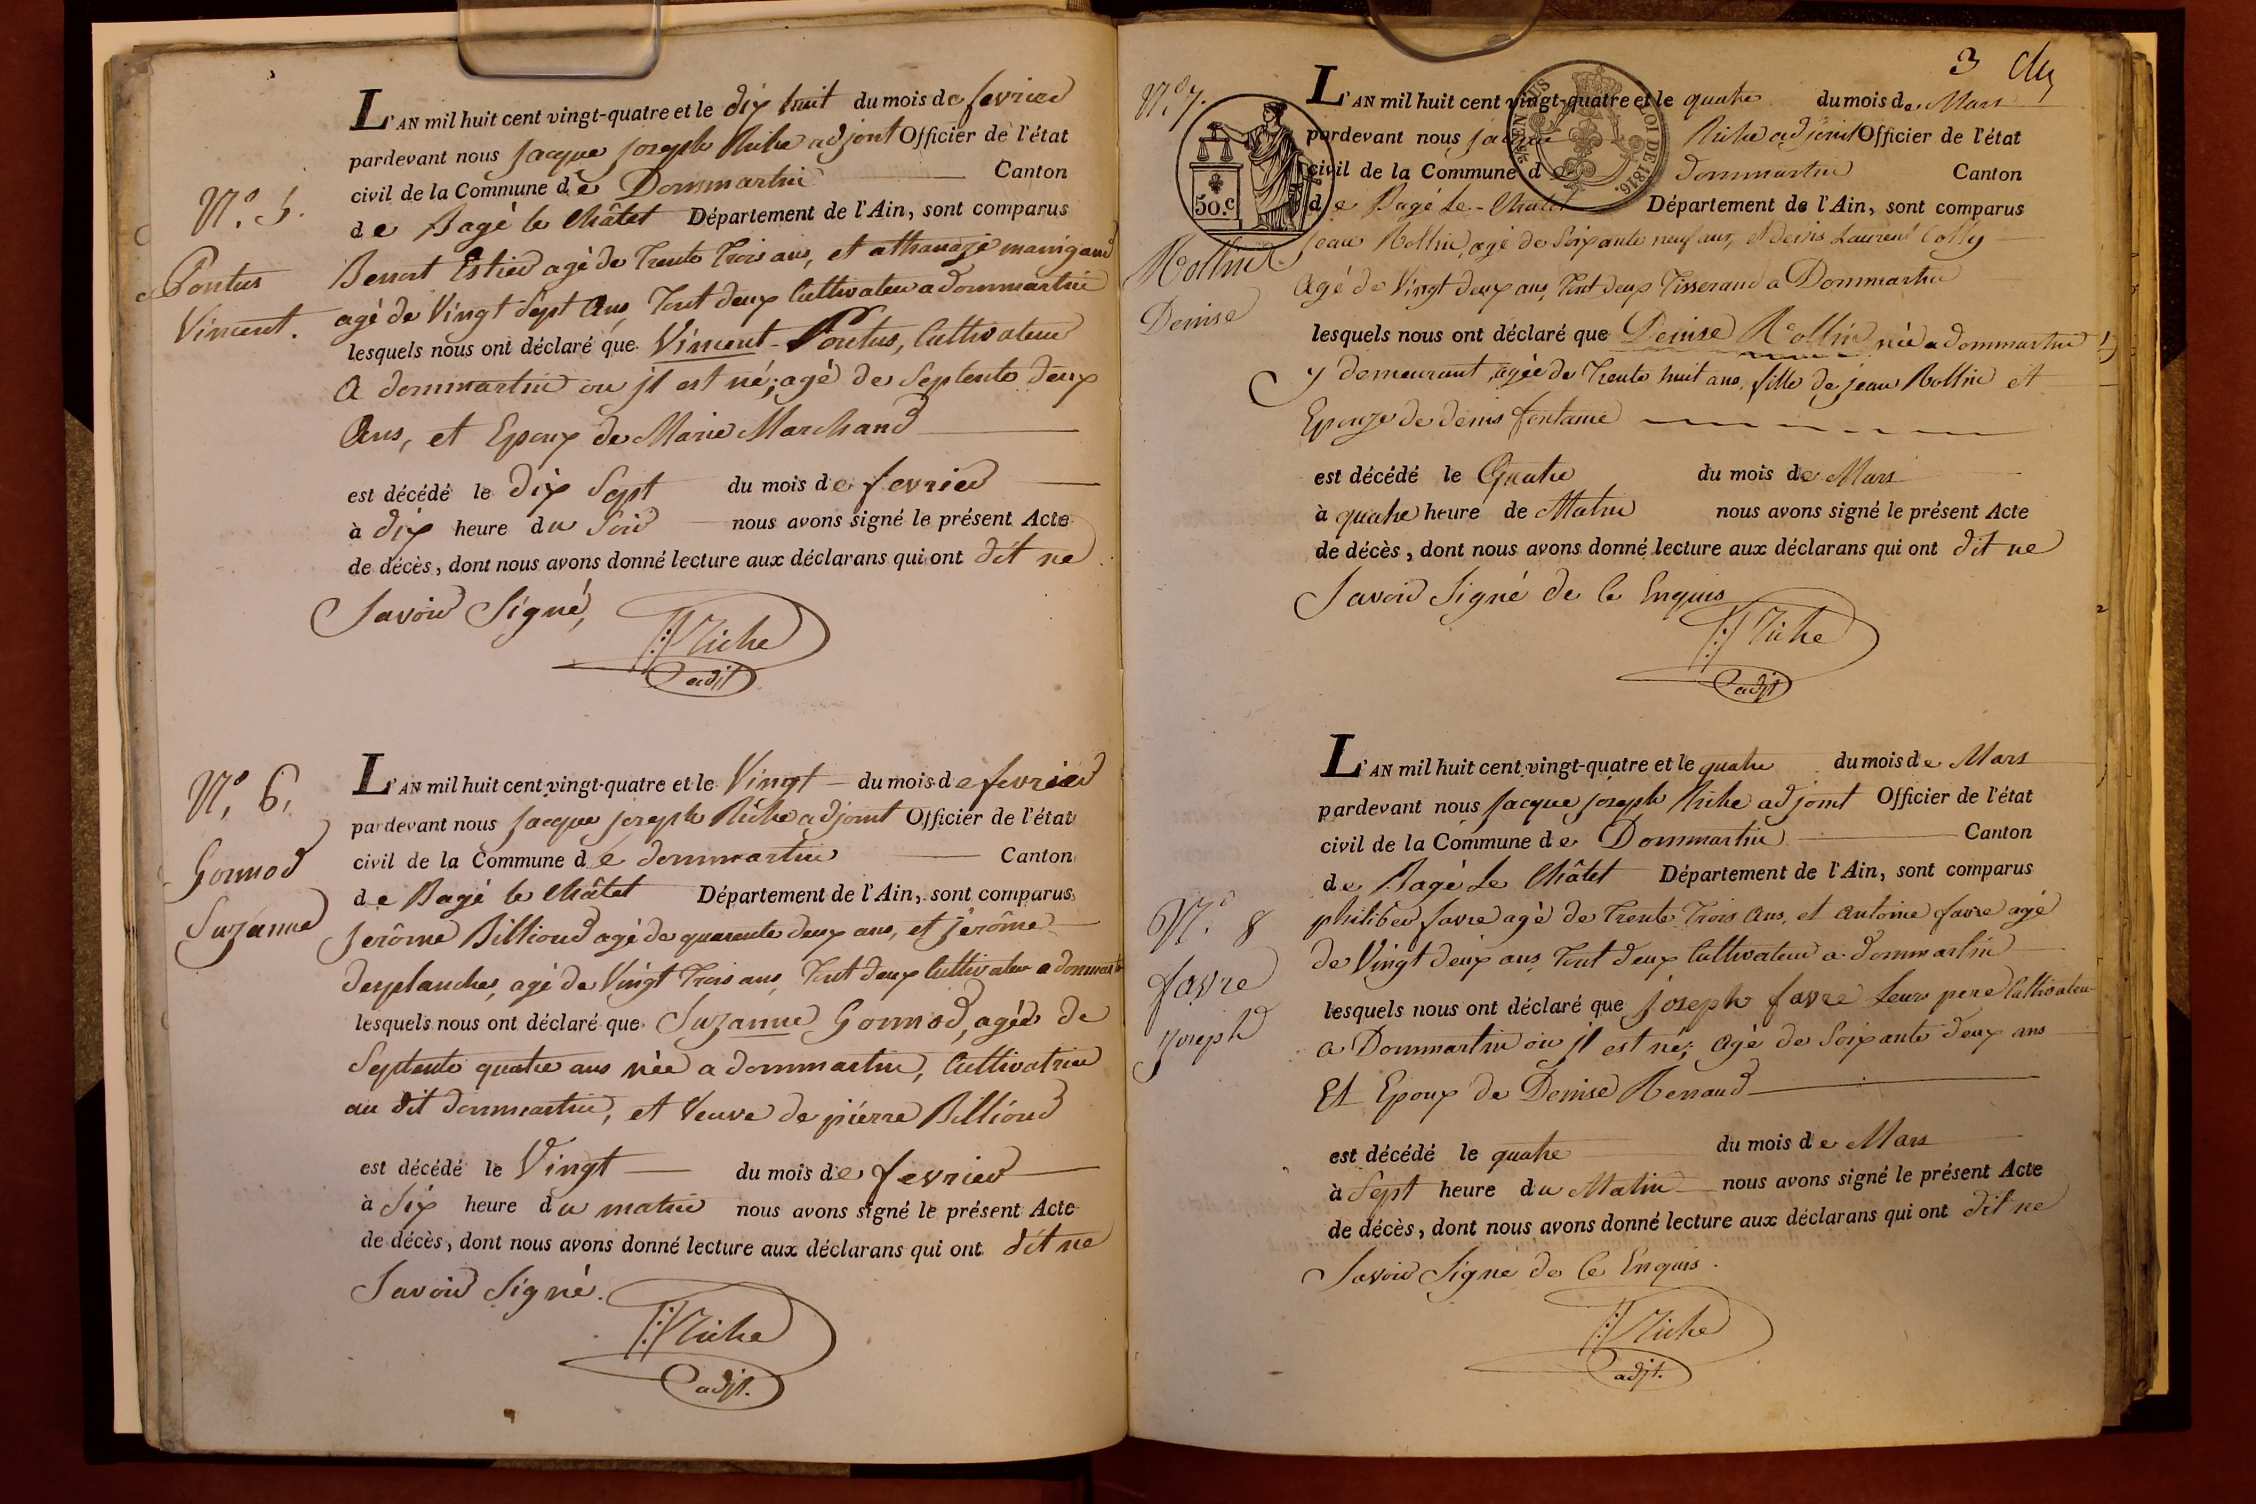 N.o 5.
Pontus
Vincent.
L'AN mil huit cent vingt-quatre et le dix huit du mois de fevrier
pardevant nous Jacque joseph Riche adjoint Officier de l'état
civil de la Commune de Dommartin Canton
de Bagé le Châtel Département de l'Ain, sont comparus
Benoit Estier agé de Trente Trois ans, et athanaze manigand
agé de Vingt Sept Ans, Tout deux Cultivateur a dommartin
lesquels nous ont déclaré que Vincent Pontus, Cultivateur
a dommartin ou jl est né; agé de Septente deux
Ans, et Epoux de Marie Marchand
est décédé le dix Sept du mois de fevrier
à dix heure du Soir nous avons signé le présent Acte
de décès, dont nous avons donné lecture aux déclarans qui ont dit ne
Savoir Signé,
Riche
adjt
N.o 6.
Gonnod
Suzanne
L'AN mil huit cent vingt-quatre et le Vingt du mois de fevrier
pardevant nous Jacque joseph Riche adjoint Officier de l'état
civil de la Commune de dommartin Canton
de Bagé le Châtel Département de l'Ain, sont comparus
Jerôme Billioud agé de quarente deux ans, et jérôme
desplanches, agé de Vingt Trois ans, Tout deux Cultivateur a dommartin
lesquels nous ont déclaré que Suzanne Gonnod, agée de
Septente quatre ans née a dommartin, Cultivatrice
au dit dommartin, et Veuve de pierre Billioud
est décédé le Vingt du mois de fevrier
à Six heure du matin nous avons signé le présent Acte
de décès, dont nous avons donné lecture aux déclarans qui ont dit ne
Savoir Signé.
Riche
adjt.
3
N.o 7.
50.c
Rollin
Denise
L'AN mil huit cent vingt-quatre et le quatre du mois de Mars
pardevant nous jacque Riche adjoint Officier de l'état
civil de la Commune de dommartin Canton
de Bagé Le-Chatel Département de l'Ain, sont comparus
LOI DE 1816.
jean Rollin, agé de Soixante neuf ans, et denis Laurent Colly
Agé de Vingt deux ans, Tout deux Tisserand a Dommartin
lesquels nous ont déclaré que Denise Rollin née a dommartin
y demeurant, agée de Trente huit ans, fille de jean Rollin et
Epouze de denis fontaine
est décédé le Quatre du mois de Mars
à quatre heure de Matin nous avons signé le présent Acte
de décès, dont nous avons donné lecture aux déclarans qui ont dit ne
Savoir Signé de Ce Enquis
Riche
adjt
N.o 8
favre
joseph
L'AN mil huit cent vingt-quatre et le quatre du mois de Mars
pardevant nous Jacque joseph Riche adjoint Officier de l'état
civil de la Commune de Dommartin Canton
de Bagé Le Châtel Département de l'Ain, sont comparus
philiber favre agé de Trente Trois Ans, et Antoine favre agé
de Vingt deux ans, Tout deux Cultivateur a dommartin
lesquels nous ont déclaré que joseph favre Leur pere Cultivateur
a Dommartin ou jl est né; Agé de Soixante deux ans
Et Epoux de Denise Renaud
est décédé le quatre du mois de Mars
à Sept heure du Matin nous avons signé le présent Acte
de décès, dont nous avons donné lecture aux déclarans qui ont dit ne
Savoir Signé de Ce Enquis.
Riche
adjt.